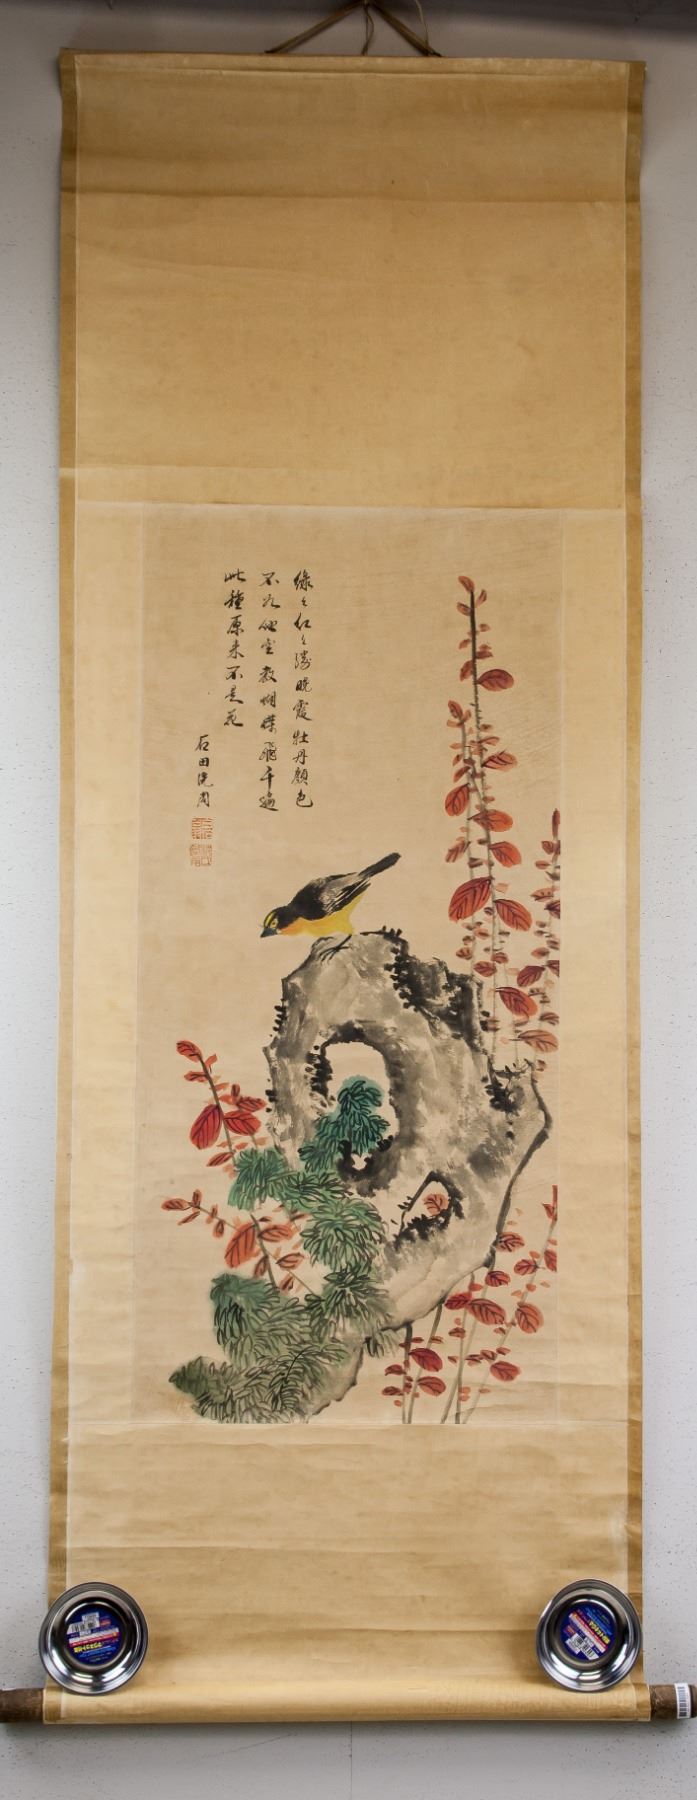 綠々紅々勝曉霞牡丹顏色
不如他空教蝴蝶飛千遍
此種原來不是花
石田沈周